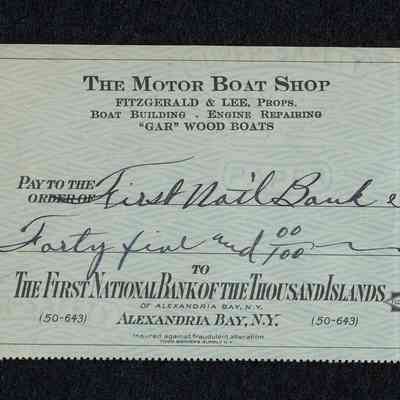 THE MOTOR BOAT SHOP
FITZGERALD & LEE, PROPS.
BOAT BUILDING - ENGINE REPAIRING
"GAR" WOOD BOATS
PAY TO THE
ORDER OF First Nat'l Bank
Forty five and 00/100
TO
THE FIRST NATIONAL BANK OF THE THOUSAND ISLANDS
OF ALEXANDRIA BAY, N.Y.
(50-643) ALEXANDRIA BAY, N.Y. (50-643)
Insured against fraudulent alteration